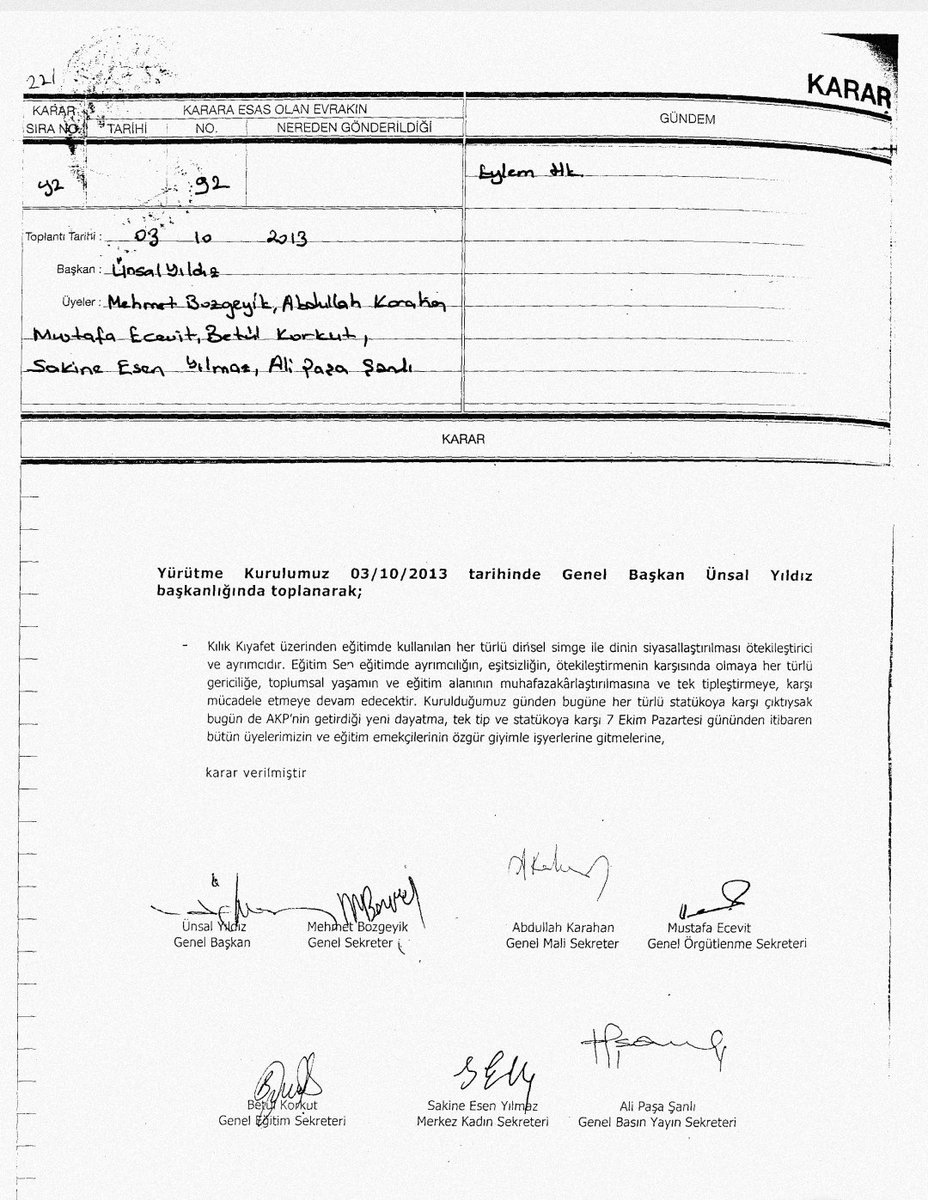 221
KARAR
KARAR SIRA NO.
KARARA ESAS OLAN EVRAKIN
TARİHİ NO. NEREDEN GÖNDERİLDİĞİ
GÜNDEM
92
Eylem Hk.
Toplantı Tarihi : 03 10 2013
Başkan : Ünsal Yıldız
Üyeler : Mehmet Bozgeyik, Abdullah Karahan
Mustafa Ecevit, Betül Korkut,
Sakine Esen Yılmaz, Ali Paşa Şanlı
KARAR
Yürütme Kurulumuz 03/10/2013 tarihinde Genel Başkan Ünsal Yıldız
başkanlığında toplanarak;
- Kılık Kıyafet üzerinden eğitimde kullanılan her türlü dinsel simge ile dinin siyasallaştırılması ötekileştirici
ve ayrımcıdır. Eğitim Sen eğitimde ayrımcılığın, eşitsizliğin, ötekileştirmenin karşısında olmaya her türlü
gericiliğe, toplumsal yaşamın ve eğitim alanının muhafazakârlaştırılmasına ve tek tipleştirmeye, karşı
mücadele etmeye devam edecektir. Kurulduğumuz günden bugüne her türlü statükoya karşı çıktıysak
bugün de AKP'nin getirdiği yeni dayatma, tek tip ve statükoya karşı 7 Ekim Pazartesi gününden itibaren
bütün üyelerimizin ve eğitim emekçilerinin özgür giyimle işyerlerine gitmelerine,
karar verilmiştir
Ünsal Yıldız Mehmet Bozgeyik Abdullah Karahan Mustafa Ecevit
Genel Başkan Genel Sekreter Genel Mali Sekreter Genel Örgütlenme Sekreteri
Betül Korkut Sakine Esen Yılmaz Ali Paşa Şanlı
Genel Eğitim Sekreteri Merkez Kadın Sekreteri Genel Basın Yayın Sekreteri